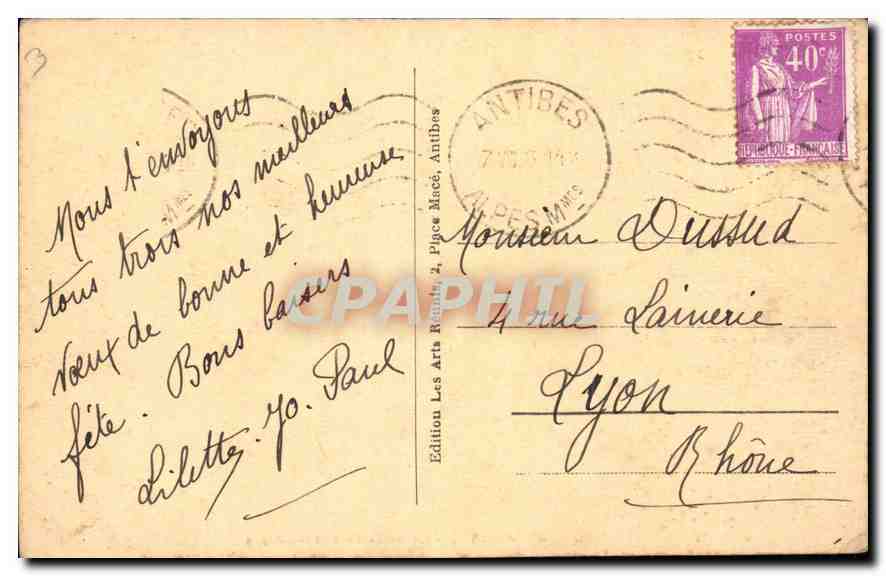 3
Nous t'envoyons
tous trois nos meilleurs
vœux de bonne et heureuse
fête. Bons baisers
Lilette. Jo. Paul
Edition Les Arts Réunis, 2, Place Macé, Antibes
ANTIBES
ALPES Mmes
POSTES
40c
REPUBLIQUE-FRANCAISE
Monsieur Dussud
4 rue Lainerie
Lyon
Rhône
CPAPHIL